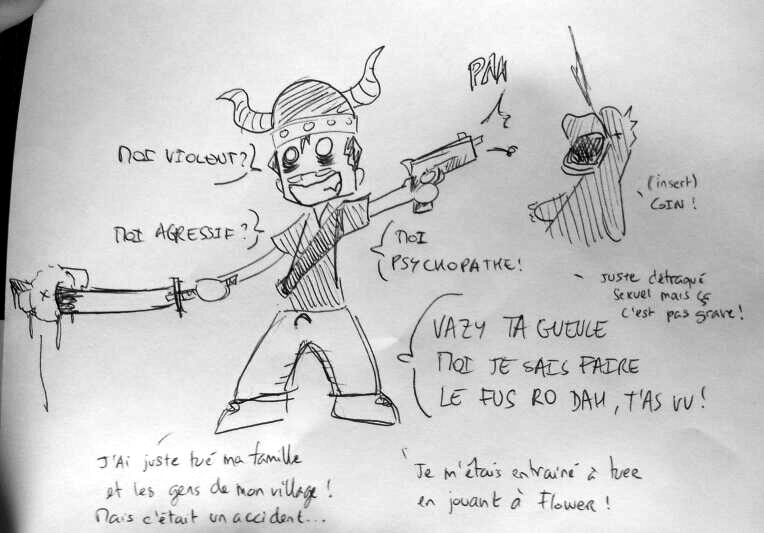 PAN
MOI VIOLENT?
(insert)
GIN!
MOI AGRESSIF?
MOI
PSYCHOPATHE!
juste détraqué
sexuel mais ça
c'est pas grave!
VAZY TA GUEULE
MOI JE SAIS FAIRE
LE FUS RO DAH, T'AS VU!
J'Ai juste tué ma famille
et les gens de mon village!
Mais c'était un accident...
Je m'étais entrainé à tuer
en jouant à Flower!